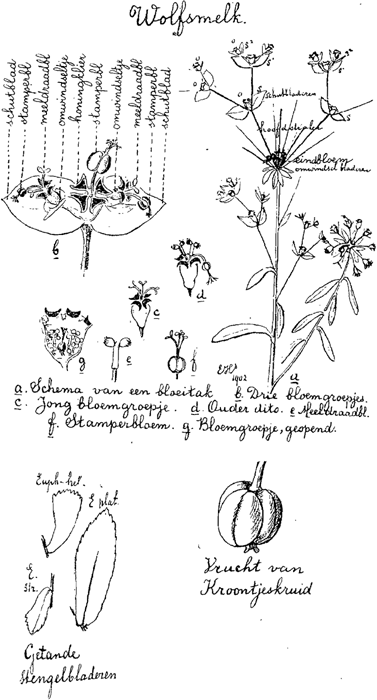 Wolfsmelk.
schutblad
stamperbl
meeldraadbl
omwindseltje
honingklier
stamperbl
omwindseltje
meeldraadbl
stamperbl
schutblad
Schutbladeren
hoofdstralen
eindbloem
omwindsel bladeren
b
c
d
g
e
f
a
EH
1902
a. Schema van een bloeitak b. Drie bloemgroepjes.
c. Jong bloemgroepje. d. Ouder dito. e Meeldraadbl.
f. Stamperbloem. g. Bloemgroepje, geopend.
Euph-hel.
E plat.
E.
str.
Getande
stengelbladeren
Vrucht van
Kroontjeskruid